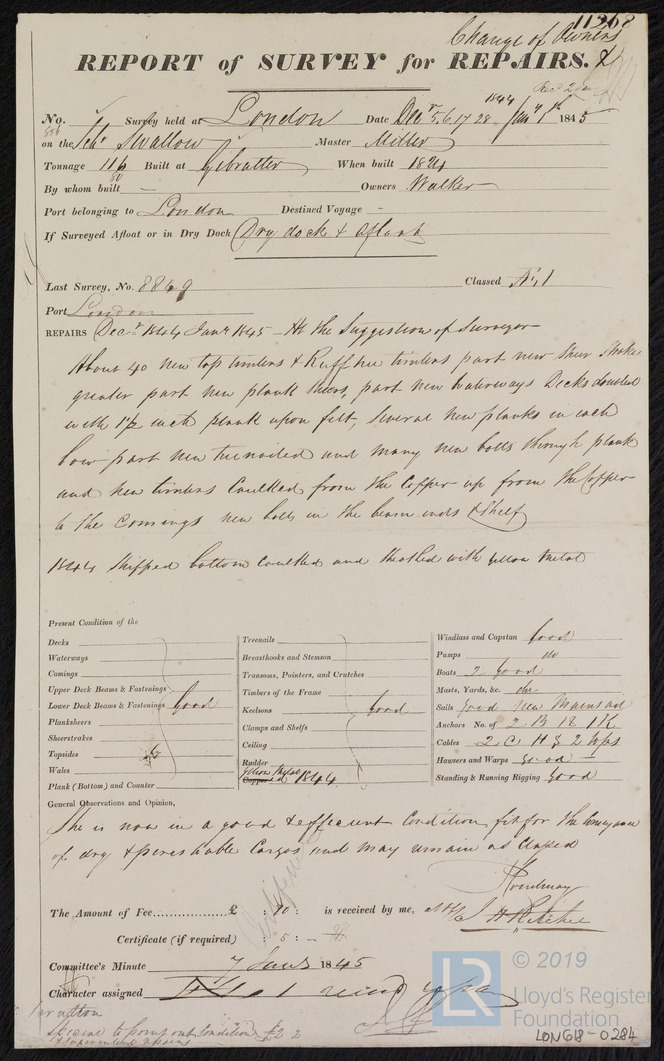 11268
Change of Owners
REPORT of SURVEY for REPAIRS. &
No. Survey held at London Date Decr 5. 6. 17 28 1844 Jany 7th 1845
on the Schr Swallow Master Miller
Tonnage 116 Built at Gibralter When built 1824
By whom built — Owners Walker
Port belonging to London Destined Voyage —
If Surveyed Afloat or in Dry Dock Dry dock & afloat
Last Survey, No. 8869 Classed Æ 1
Port London
REPAIRS Decr 1844 Jany 1845 — At the Suggestion of Surveyor
About 40 new top timbers & Ruff tree timbers part new Sheer Strakes
greater part new plank sheers, part new waterways Decks doubled
with 1½ inch plank upon felt, several new planks in each
bow part new treenailed and many new bolts through plank
and new timbers Caulked from the Copper up from the Copper
to the Comings new bolts in the beam ends & Shelf
1844 Stripped bottom caulked and sheathed with yellow metal
Present Condition of the
Decks
Waterways
Comings
Upper Deck Beams & Fastenings
Lower Deck Beams & Fastenings Good
Planksheers
Sheerstrakes
Topsides
Wales
Plank (Bottom) and Counter
Treenails
Breasthooks and Stemson
Transoms, Pointers, and Crutches
Timbers of the Frame
Keelsons Good
Clamps and Shelfs
Ceiling
Rudder
Yellow Metal
Coppered 1844
Windlass and Capstan Good
Pumps do
Boats 2 good
Masts, Yards, &c. do
Sails Good new Mainsail
Anchors No. of 2 B 1 S 1 K
Cables 2 C H & 2 Wps
Hausers and Warps good
Standing & Running Rigging Good
General Observations and Opinion,
She is now in a good & efficient Condition fit for the Conveyance
of dry & perishable Cargos and may remain as Classed
The Amount of Fee.................£ : 10 : is received by me,
J H Ritchie
Certificate (if required) : 5 : —
Committee's Minute 7 Jany 1845
Character assigned
LR
© 2019
Lloyd's Register
Foundation
LON618-0284